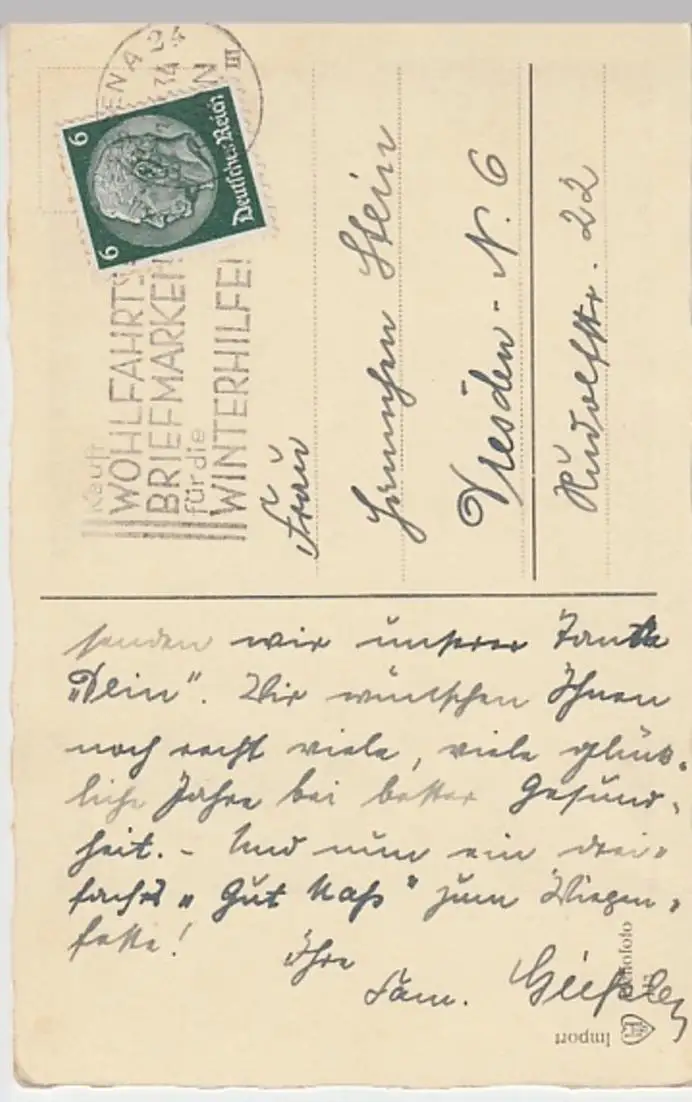 24
34
III
6
6
Deutsches Reich
Kauft
WOHLFAHRTS
BRIEFMARKEN
für die
WINTERHILFE!
Frau
Stein
Dresden - N. 6
Rudolfstr. 22
senden wir unserer Tante
"Stein". Wir wünschen Ihnen
noch recht viele, viele glück-
liche Jahre bei bester Gesund-
heit. - Und nun ein drei-
faches "Gut Naß" zum Wiegen-
feste!
Ihre
Fam.
Import